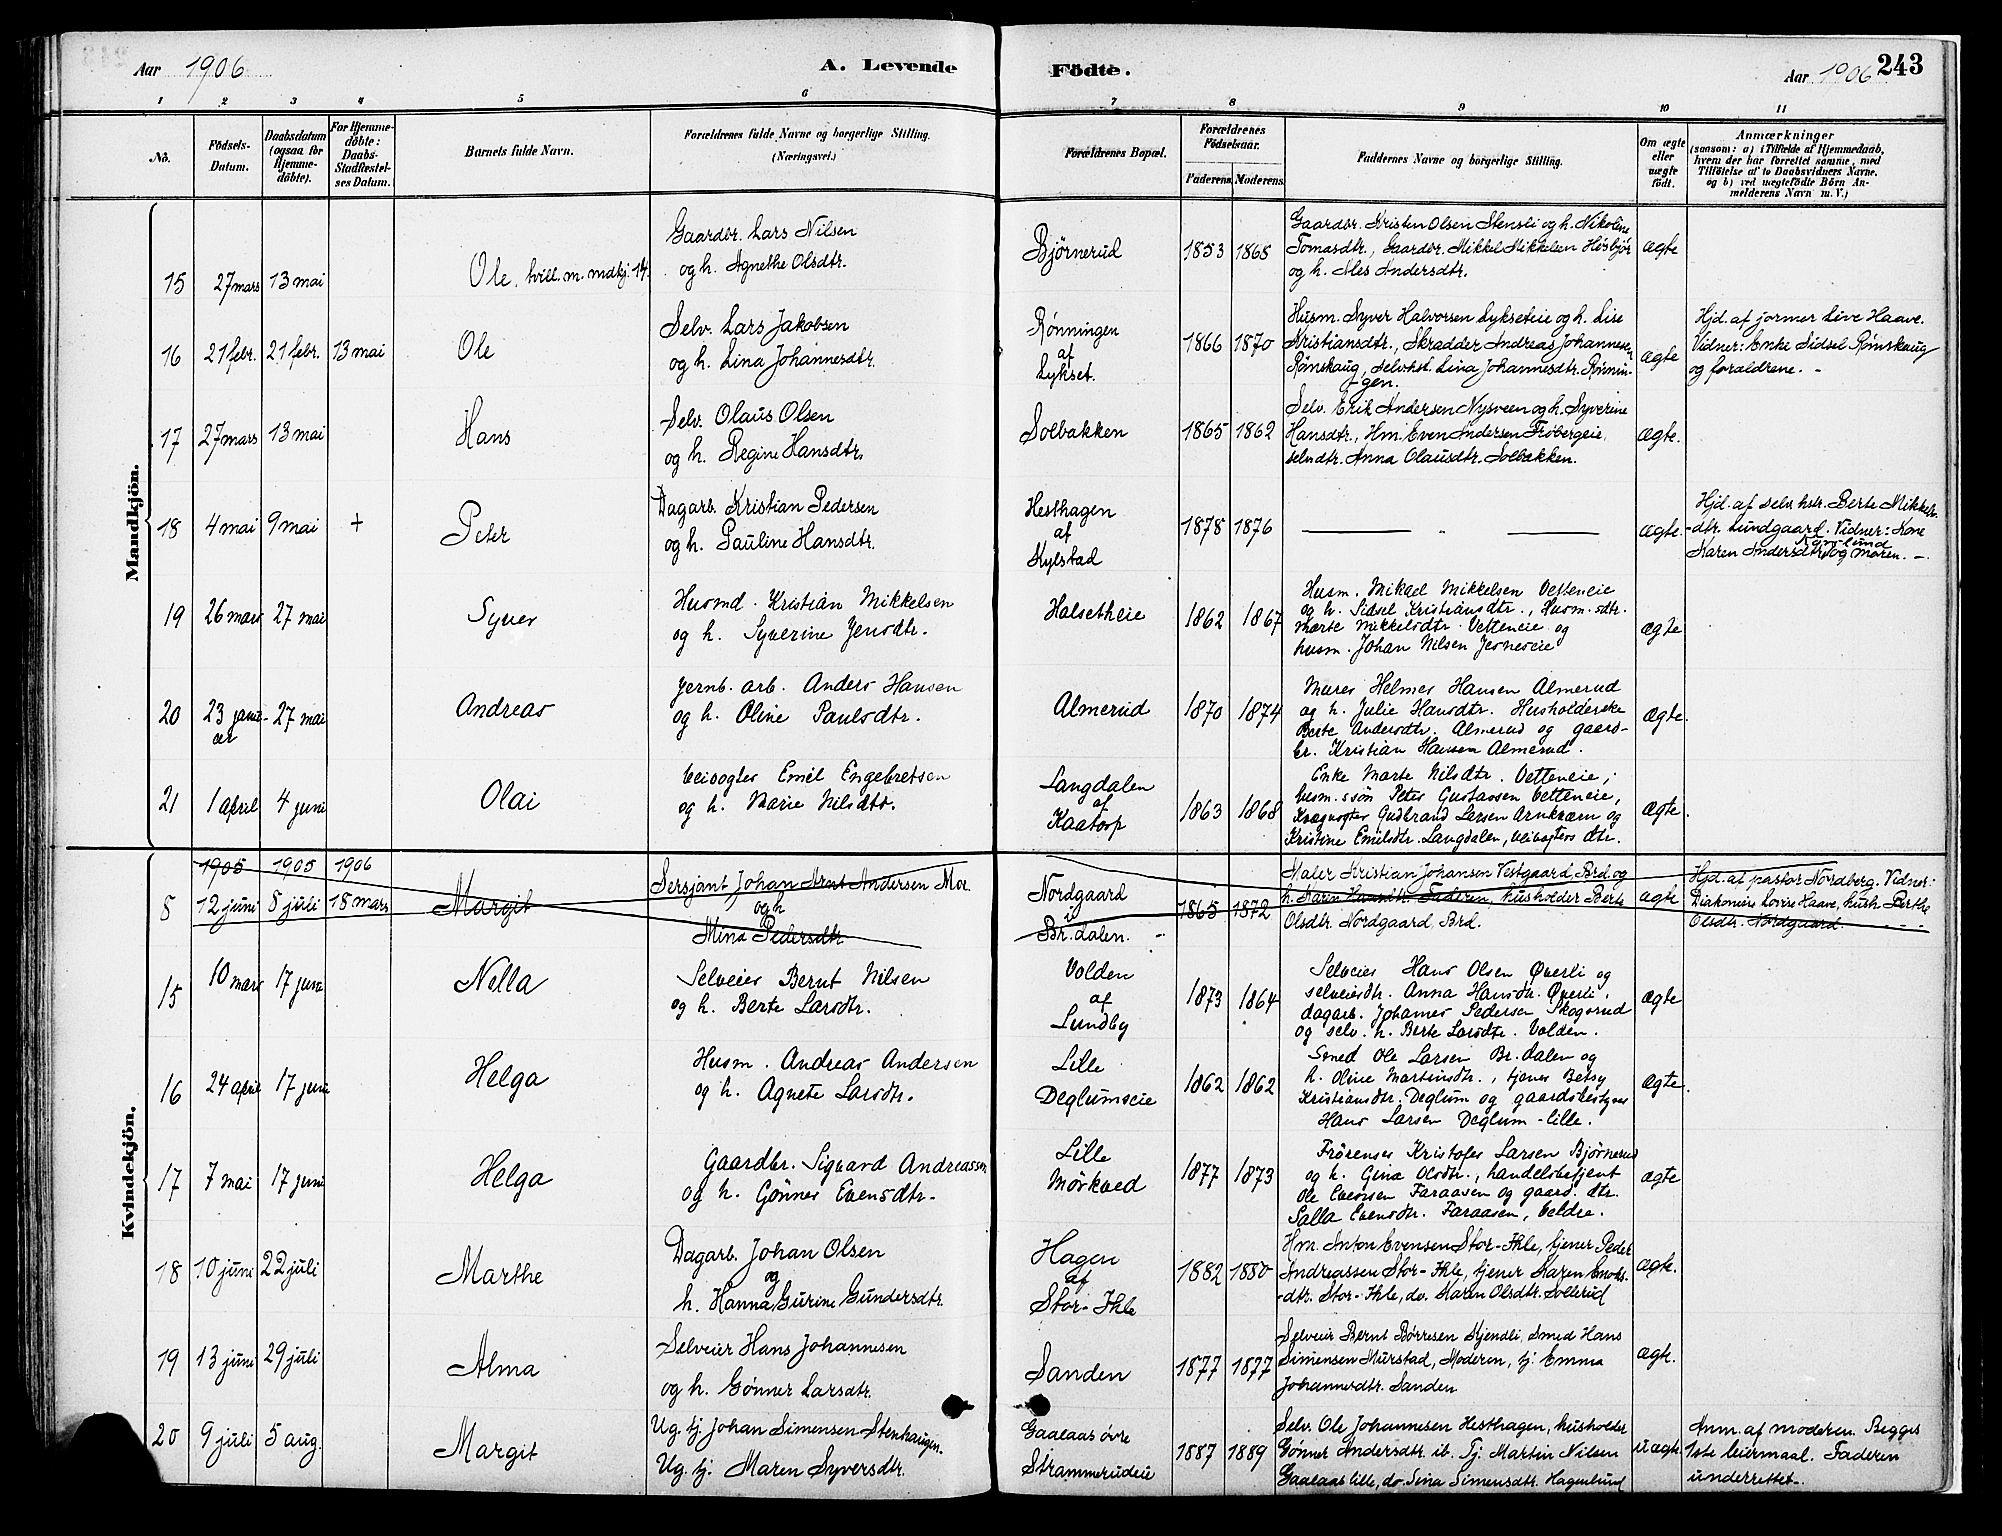 Aar 1906
A. Levende
Födte.
Aar 1906
243
1 2 3 4 5 6 7 8 9 10 11
No.
Födsels-
Datum.
Daabsdatum
(ogsaa for
Hjemme-
döbte).
For Hjemme-
döbte:
Daabs-
Stadfæstel-
ses Datum.
Barnets fulde Navn.
Forældrenes fulde Navne og borgerlige Stilling.
(Næringsvei.)
Forældrenes Bopæl.
Forældrenes
Födselsaar.
Faderens. Moderens.
Faddernes Navne og borgerlige Stilling.
Om ægte
eller
uægte
födt.
Anmærkninger
(saasom: a) i Tilfælde af Hjemmedaab,
hvem der har forrettet samme, med
Tilföielse af to Daabsvidners Navne,
og b) ved uægtefödte Börn An-
melderens Navn m. V.)
Mandkjön.
15 27 mars 13 mai
Ole, tvill. m. mdkj. 14.
Gaardbr. Lars Nilsen
og h. Agnethe Olsdtr.
Bjørnerud
1853 1865
Gaardbr. Kristen Olsen Stensli og h. Nikoline
Tomasdtr., Gaardbr. Mikkel Mikkelsen Høsbjør
og h. Andersdtr.
ægte
16 21 febr. 21 febr. 13 mai
Ole
Selv. Lars Jakobsen
og h. Lina Johannesdtr.
Rønningen
af
Lykset.
1866 1870
Husm. Syver Halvorsen Lykseteie og h. Lise
Kristiansdtr., Skrædder Andreas Johannesen
Rømskaug, selvhst. Lina Johannesdtr. Rønnin-
gen.
ægte
Hjd. af jormor Live Haave.
Vidner: Enke Sidsel Rømskaug
og forældrene. -
17 27 mars 13 mai
Hans
Selv. Olaus Olsen
og h. Regine Hansdtr.
Solbakken
1865 1862
Selv. Erik Andersen Nysveen og h. Syverine
Hansdtr., Hm. Even Andersen Frøbergeie,
selvdtr. Anna Olausdtr. Solbakken.
ægte.
18 4 mai 9 mai +
Peter
Dagarb. Kristian Pedersen
og h. Pauline Hansdtr.
Hesthagen
af
Kylstad
1878 1876
— " —
ægte.
Hjd. af selv. hstr. Berte Mikkels-
-dtr. Lundgaard. Vidner: Kone
Karen Andersdtr. og moren. -
19 26 mars 27 mai
Syver
Husmd. Kristian Mikkelsen
og h. Syverine Jensdtr.
Halsetheie
1862 1867
Husm. Mikael Mikkelsen Vetteneie
og h. Sidsel Kristiansdtr., Husm.sdtr.
Marte Mikkelsdtr. Vetteneie og
husm. Johan Nilsen Jesneseie
ægte
20 23 janu- 27 mai
ar
Andreas
Jernb. arb. Anders Hansen
og h. Oline Paulsdtr.
Almerud
1870 1874
Murer Helmer Hansen Almerud
og h. Julie Hansdtr. Husholderske
Berte Andersdtr. Almerud og gaard-
br. Kristian Hansen Almerud.
ægte.
21 1 april 4 juni
Olai
Veivogter Emil Engebretsen
og h. Marie Nilsdtr.
Langdalen
af
Kaatorp
1863 1868
Enke Marte Nilsdtr. Vetteneie;
husm.ssøn Peter Gustavsen Vetteneie,
Kvægvogter Gudbrand Larsen Arnkværn og
Kristine Emilsdtr. Langdalen, veivogters dtr.
ægte.
Kvindekjön.
1905 1905 1906
8 12 juni 8 juli 18 mars
Margit
Sersjant Johan Arnt Andersen Mor.
og h
Mina Pedersdtr
Nordgaard
i
Br. dalen. -
1865 1872
Maler Kristian Johansen Vestgaard, Brd. og
h. Karen Hansdtr. Faderen, husholder Berte
Olsdtr. Nordgaard, Brd.
ægte
Hjd. af pastor Nordberg. Vidner:
Diakonisse Lovise Haave, hush. Berthe
Olsdtr. Nordgaard.
15 10 mars 17 juni
Nella
Selveier Bernt Nilsen
og h. Berte Larsdtr.
Volden
af
Lundby
1873 1864
Selveier Hans Olsen Øverli og
selveierdtr. Anna Hansdtr. Øverli,
dagarb. Johannes Pedersen Skogsrud
og selv. h. Berte Larsdtr. Volden.
ægte
16 24 april 17 juni
Helga
Husm. Andreas Andersen
og h. Agnete Larsdtr.
Lille
Deglumseie
1862 1862
Smed Ole Larsen Br. dalen og
h. Oline Martinsdtr., tjener Betsy
Kristiansdtr. Deglum og gaardsbestyrer
Hans Larsen Deglum - lille.
ægte.
17 7 mai 17 juni
Helga
Gaardbr. Sigvard Andreassen
og h. Gønner Evensdtr.
Lille
Mørkved
1877 1873
Frørenser Kristofer Larsen Bjørnerud
og h. Gina Olsdtr., handelsbetjent
Ole Evensen Faraasen og gaard. dtr.
Salla Evensdtr. Faraasen, Veldre.
ægte
18 10 juni 22 juli
Marthe
Dagarb. Johan Olsen
og
h. Hanna Gurine Gundersdtr.
Hagen
af
Stor-Ihle
1882 1880
Hm. Anton Evensen Stor-Ihle, tjener Peder
Andreassen Stor-Ihle, tjener Karen Enoks-
-dtr. Stor-Ihle, do. Karen Olsdtr. Sollerud
ægte.
19 13 juni 29 juli
Alma
Selveier Hans Johannesen
og h. Gønner Larsdtr.
Sanden
1877 1877
Selveier Bernt Børresen Kjendli, Smed Hans
Simensen Murstad, Moderen, tj. Emma
Johannesdtr. Sanden
ægte.
20 9 juli 5 aug.
Margit
Ug. tj. Johan Simensen Stenhaugen.
Ug. tj. Maren Syversdtr.
Gaalaas øvre
Strammerudeie
1887 1889
Selv. Ole Johannesen Hesthagen, husholder
Gønner Andersdtr. ib. Tj. Martin Nilsen
Gaalaas lille, do. Sina Simensdtr. Hagenlund
uægte.
Anm. af moderen. Begges
1ste leiermaal. Faderen
underrettet.